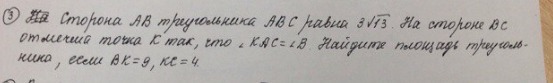 ③ На Сторона АВ треугольника АВС равна 3√13. На стороне ВС
отмечена точка К так, что ∠ КАС=∠В. Найдите площадь треуголь-
ника, если ВК=9, КС=4.